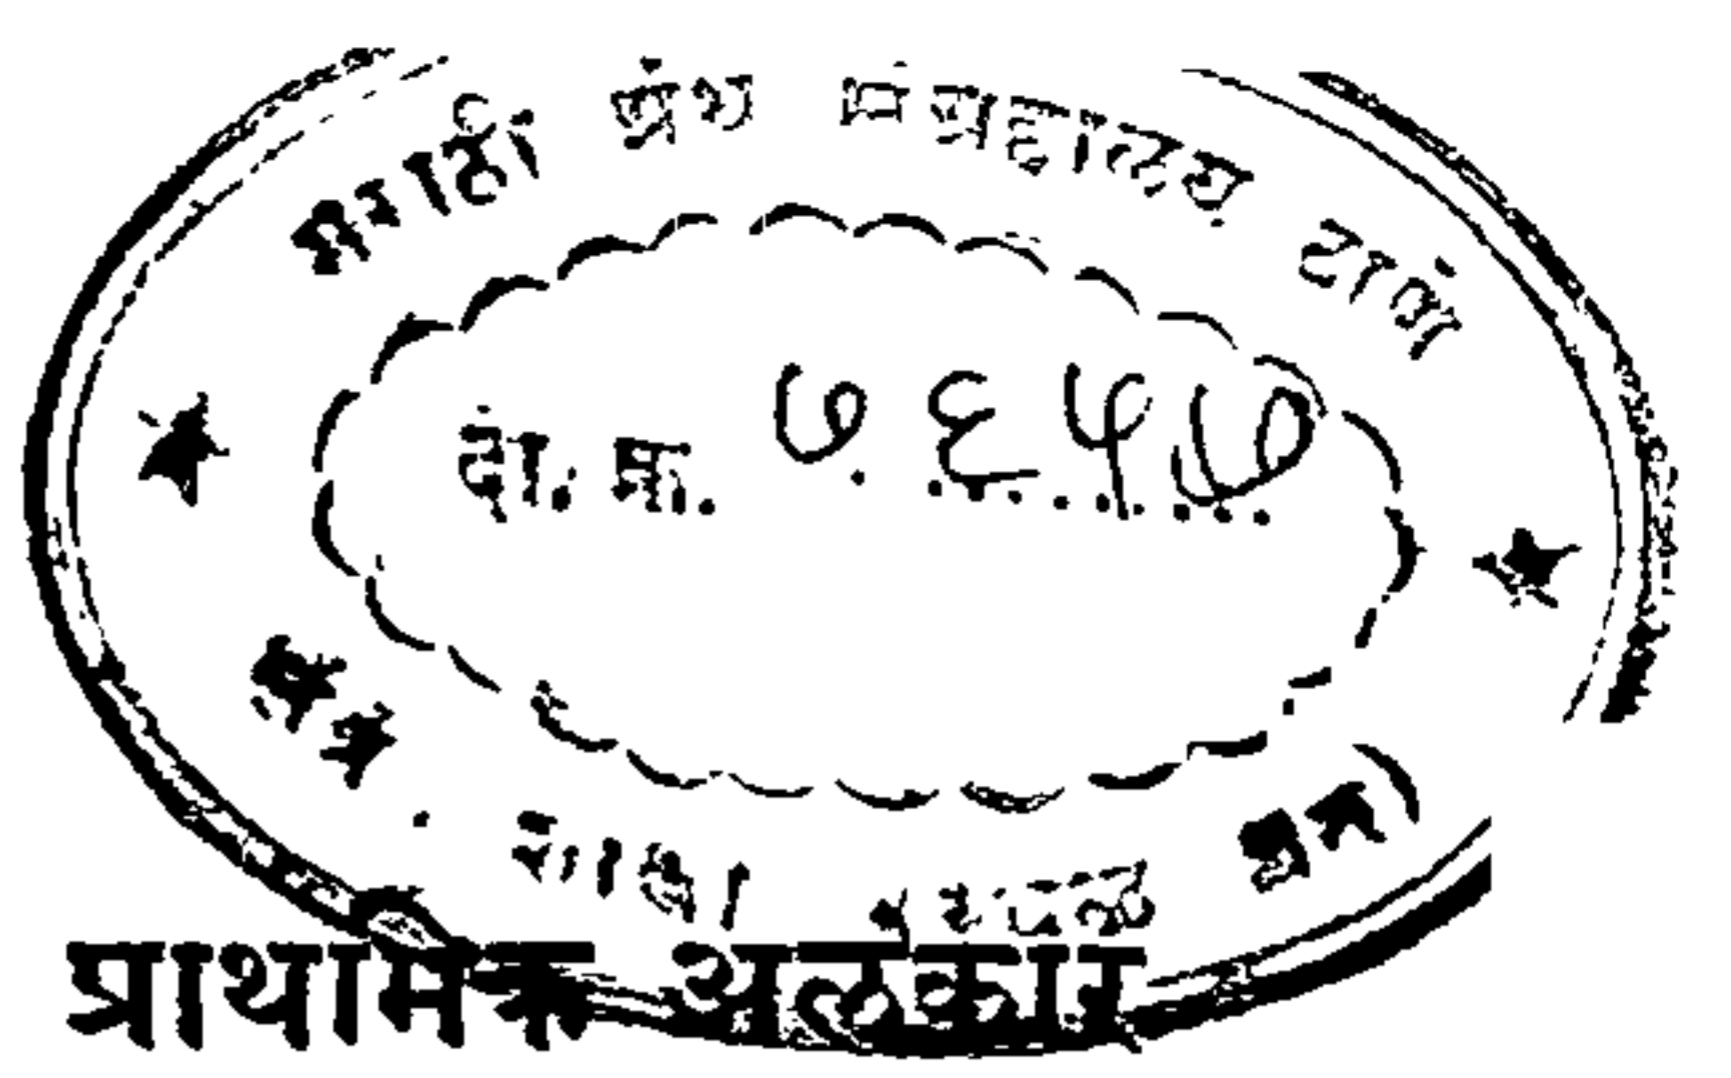 मराठी ग्रंथ संग्रहालय ठाणें
दा. क्र. ७६५७
शाखा
प्राथमिक अलंकार